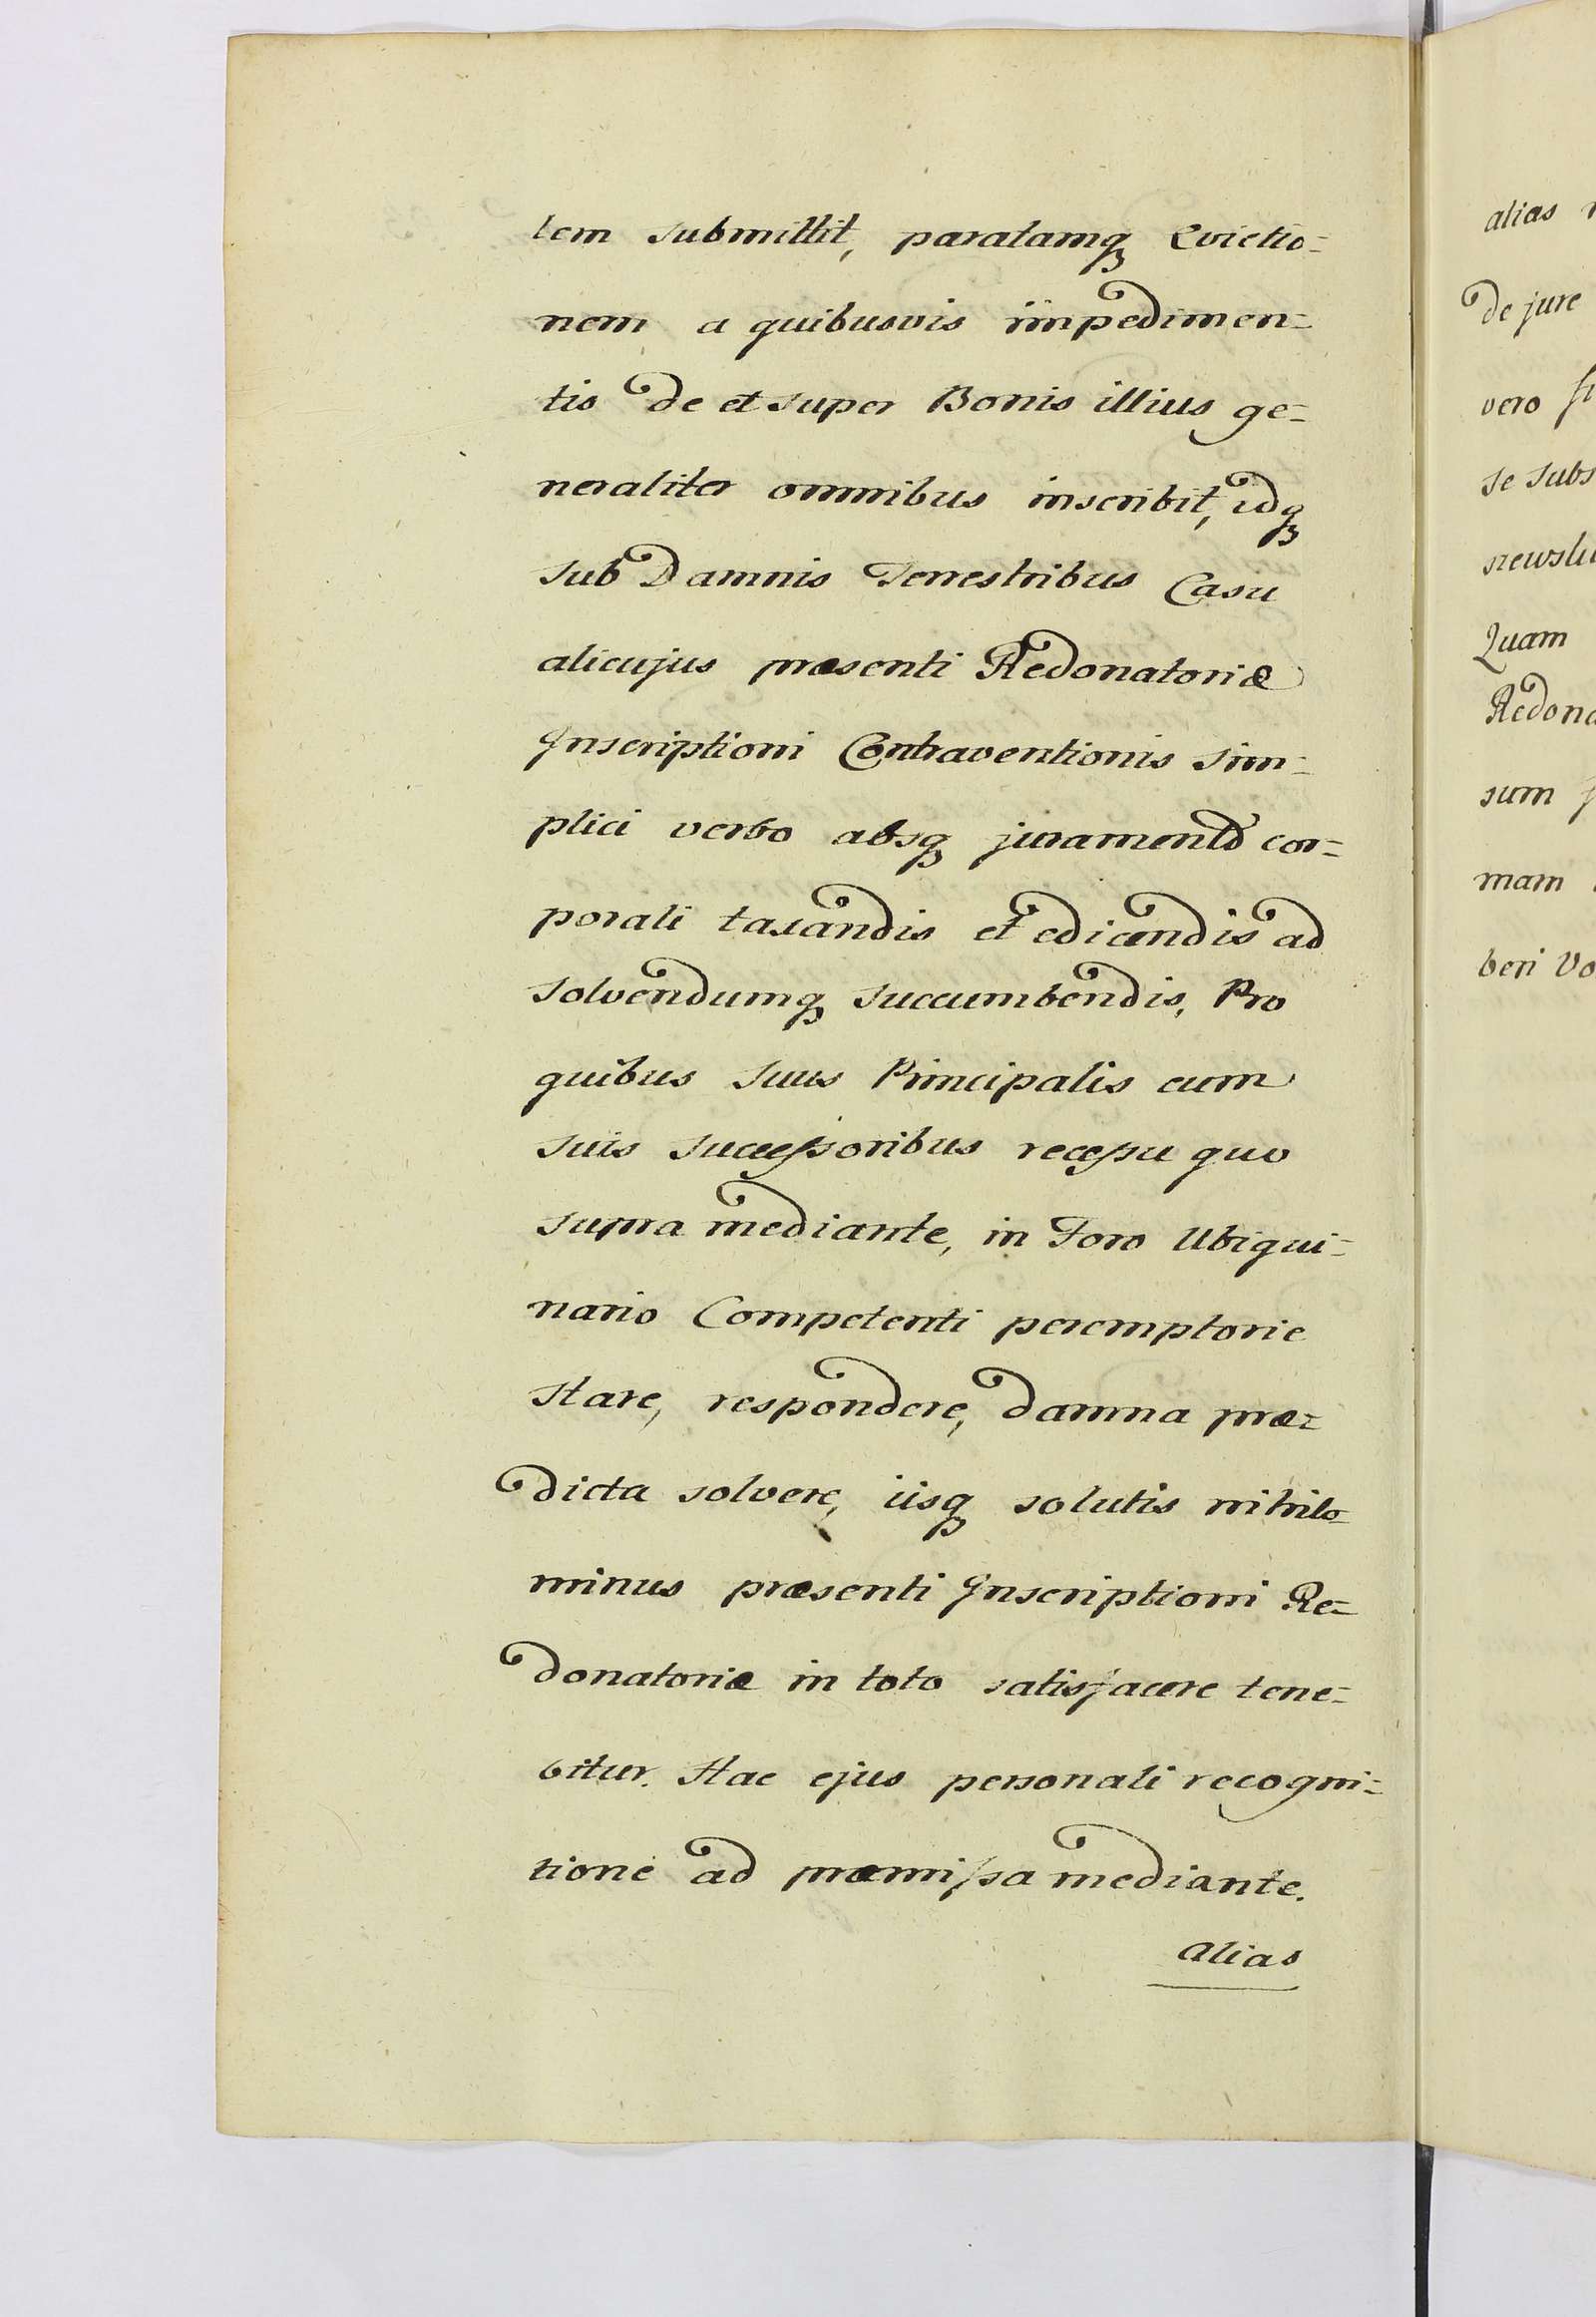 tem submittit, paratamq Evictio=
nem a quibusvis iimpedimen=
tis de et super Bonis illius ge=
neraliter omnibus inscribit, idq
sub Damnis Terrestribus Casu
alicujus præsenti Redonatoriæ
Inscriptioni Contraventionis sim=
plici verbo absq juramento cor=
porali taxandis et edicendis ad
solvendumq succumbendis, Pro
quibus suus Principalis cum
suis successoribus recessu quo
supra mediante, in Foro Ubiqui=
nario Competenti peremptorie
stare, respondere, damna præ=
dicta solvere, iisq solutis nihilo=
minus præsenti Inscriptioni Re=
donatoriæ in toto satisfacere tene=
bitur. Hac ejus personali recogni=
tione ad præmissa mediante.
alias
alias
de jure
vero
se subs
Quam
Redona
sum
mam
beri Vo